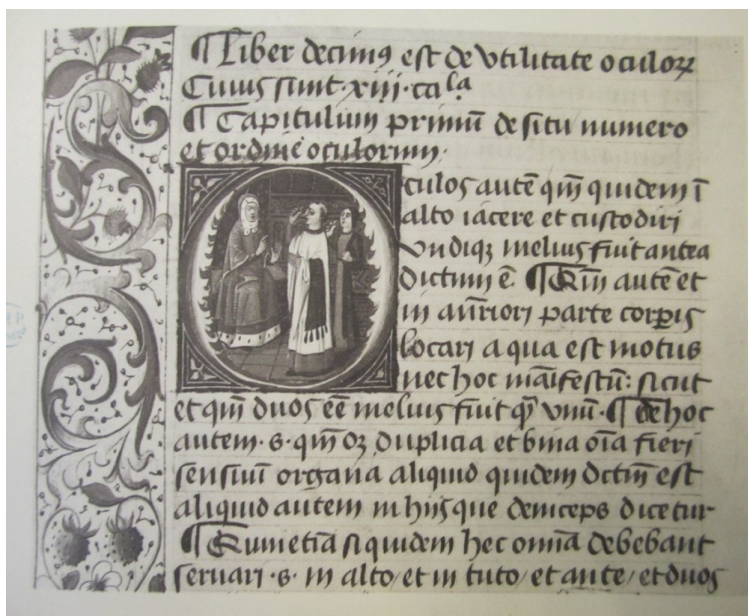 ¶ Liber decimꝰ est de vtilitate oculoꝝ
Cuius sunt·xiii·caᵖˡᵃ
¶ Capitulum primũ de situ numero
et ordinẽ oculorum·
Oculos autẽ qm̃ quidem ĩ
alto iacere et custodiri
vndiqꝫ melius fuit antea
dictum ẽ· ¶ Qm̃ autẽ et
in añriori parte corꝑis
locari a qua est motus
nec hoc mãifestũ: sicut
et qm̃ duos eẽ melius fuit qᷓ vnũ· ¶ de hoc
autem·s·qm̃ oꝫ duplicia et bina oĩa fieri
sensiuũ organa aliquid quidem dctm̃ est
aliquid autem in hijs que deinceps dicetur
¶ Cum etiã si quidem hec omnia debebant
seruari·s·in alto/et in tuto/et ante/et duos